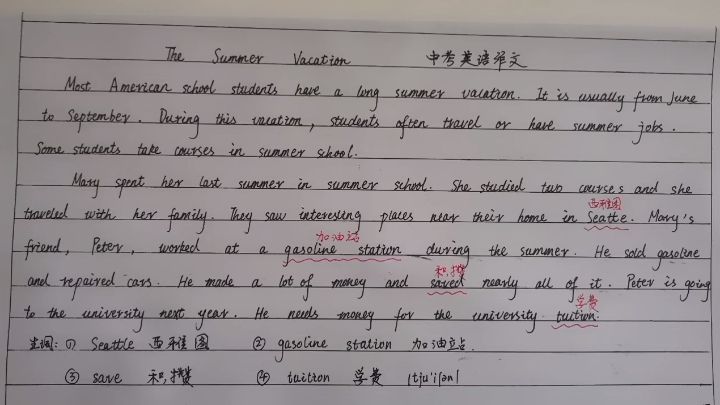 The Summer Vacation 中考英语作文
Most American school students have a long summer vacation. It is usually from June
to September. During this vacation, students often travel or have summer jobs.
Some students take courses in summer school.
Mary spent her last summer in summer school. She studied two courses and she
西雅图
traveled with her family. They saw interesting places near their home in Seatte. Mary's
加油站
friend, Peter, worked at a gasoline station during the summer. He sold gasoline
积攒
and repaired cars. He made a lot of money and saved nearly all of it. Peter is going
学费
to the university next year. He needs money for the university tuition.
生词: ① Seattle 西雅图 ② gasoline station 加油站.
③ save 积攒 ④ tuition 学费 /tju'iʃən/